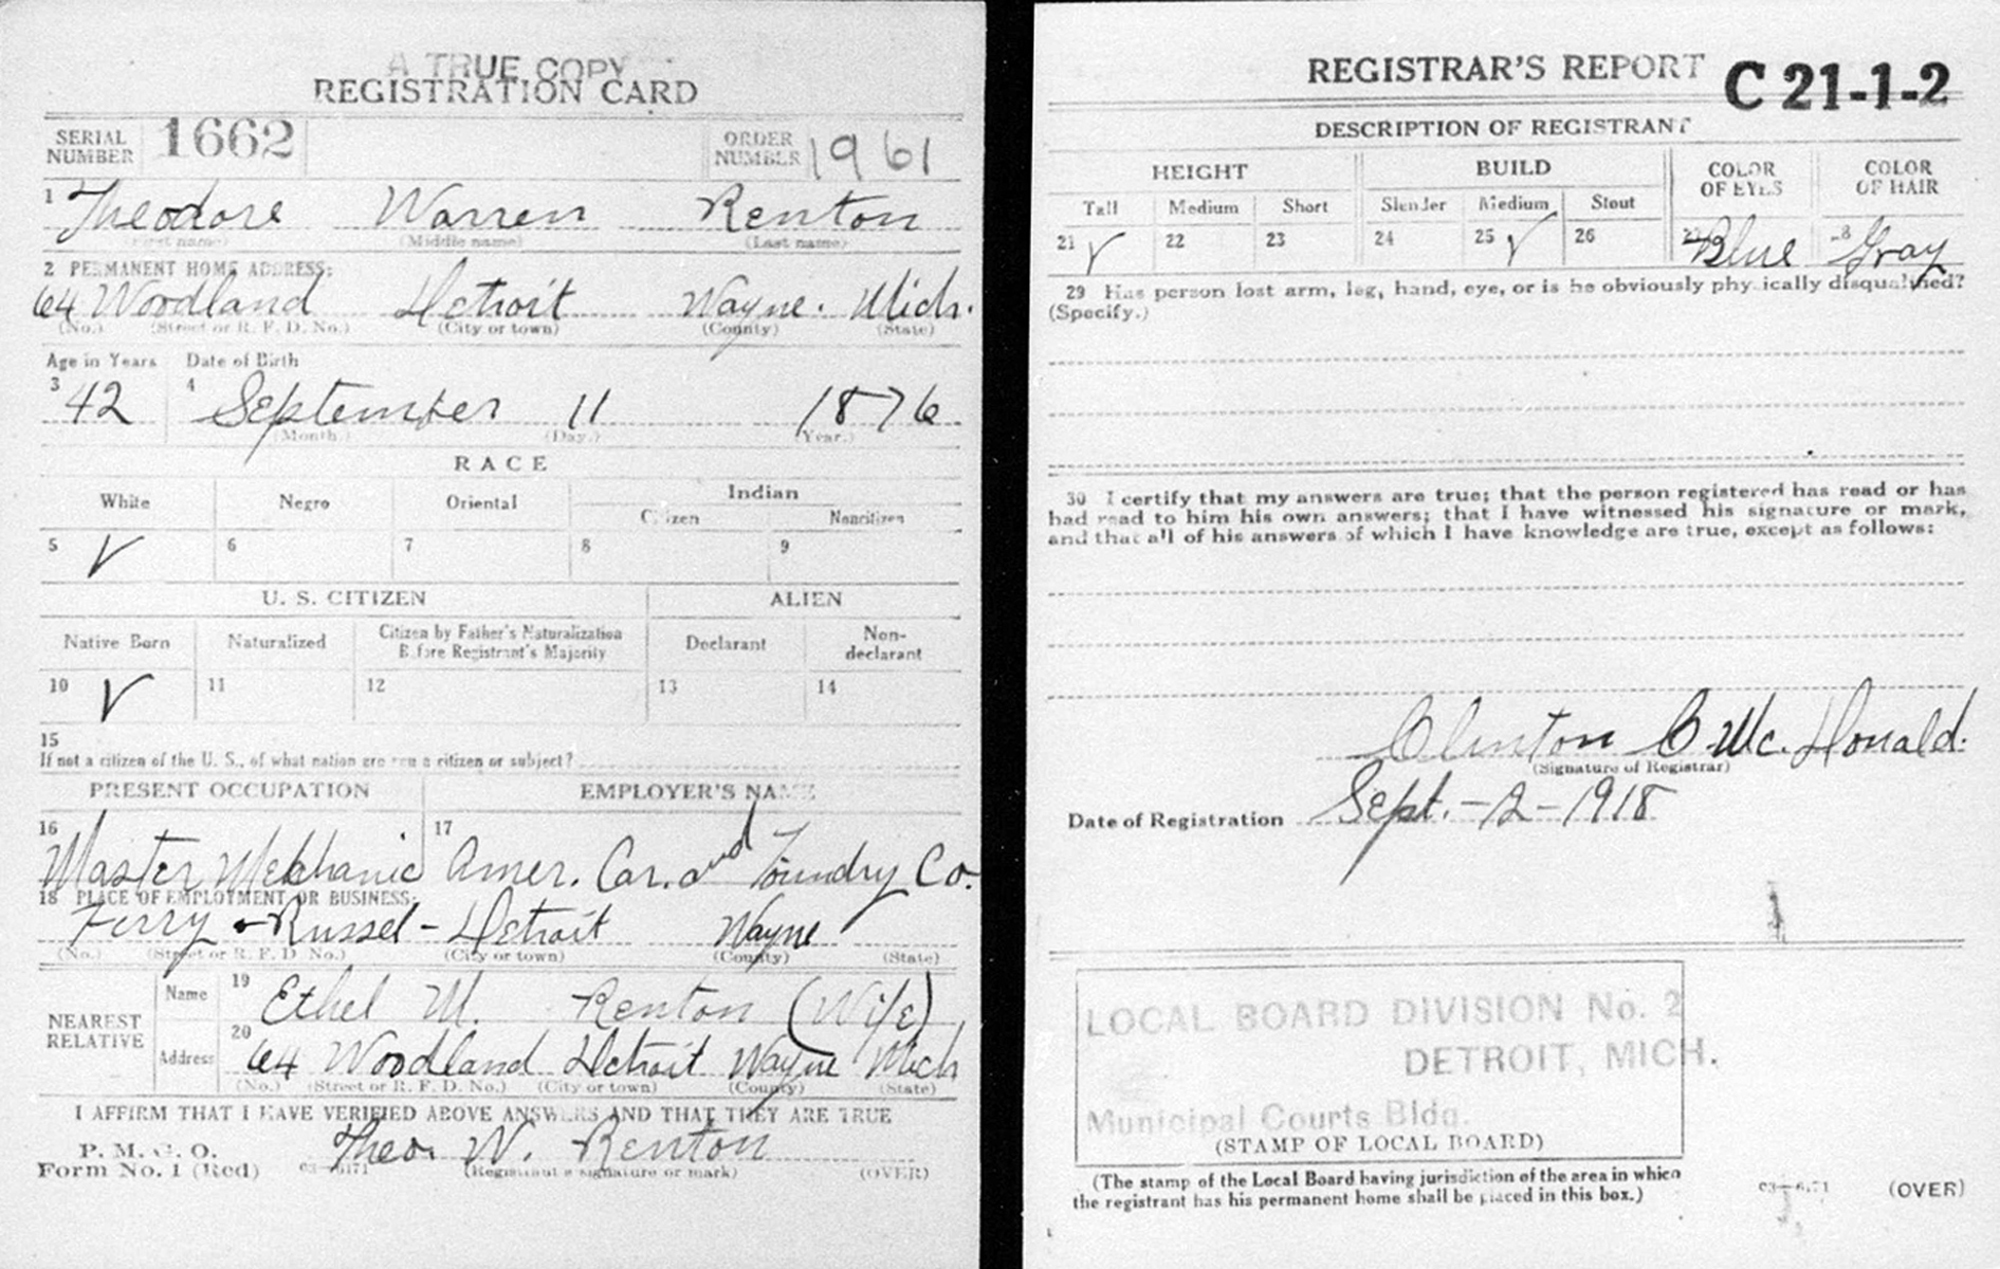 A TRUE COPY
REGISTRATION CARD
SERIAL NUMBER 1662 ORDER NUMBER 1961
1 Theodore Warren Renton
(First name) (Middle name) (Last name)
2 PERMANENT HOME ADDRESS:
64 Woodland Detroit Wayne. Mich.
(No.) (Street or R. F. D. No.) (City or town) (County) (State)
Age in Years Date of Birth
3 42 4 September 11 1876
(Month.) (Day.) (Year.)
RACE
White Negro Oriental Indian
Citizen Noncitizen
5 V 6 7 8 9
U. S. CITIZEN ALIEN
Native Born Naturalized Citizen by Father's Naturalization Before Registrant's Majority Declarant Non-declarant
10 V 11 12 13 14
15
If not a citizen of the U. S., of what nation are you a citizen or subject?
PRESENT OCCUPATION EMPLOYER'S NAME
16 Master Mekhanic 17 Amer. Car. and Foundry Co.
18 PLACE OF EMPLOYMENT OR BUSINESS:
Ferry - Russel - Detroit Wayne
(No.) (Street or R. F. D. No.) (City or town) (County) (State)
NEAREST RELATIVE
Name 19 Ethel M. Renton (Wife)
Address 20 64 Woodland Detroit Wayne Mich
(No.) (Street or R. F. D. No.) (City or town) (County) (State)
I AFFIRM THAT I HAVE VERIFIED ABOVE ANSWERS AND THAT THEY ARE TRUE
P. M. G. O.
Form No. 1 (Red) 03-6171 Theo. W. Renton
(Registrant's signature or mark) (OVER)
REGISTRAR'S REPORT C 21-1-2
DESCRIPTION OF REGISTRANT
HEIGHT BUILD COLOR OF EYES COLOR OF HAIR
Tall Medium Short Slender Medium Stout
21 V 22 23 24 25 V 26 27 Blue 28 Gray
29 Has person lost arm, leg, hand, eye, or is he obviously physically disqualified?
(Specify.)
30 I certify that my answers are true; that the person registered has read or has
had read to him his own answers; that I have witnessed his signature or mark,
and that all of his answers of which I have knowledge are true, except as follows:
Clinton C McDonald.
(Signature of Registrar)
Date of Registration Sept. - 12 - 1918
LOCAL BOARD DIVISION No. 2
DETROIT, MICH.
Municipal Courts Bldg.
(STAMP OF LOCAL BOARD)
(The stamp of the Local Board having jurisdiction of the area in which
the registrant has his permanent home shall be placed in this box.)
03-6171 (OVER)